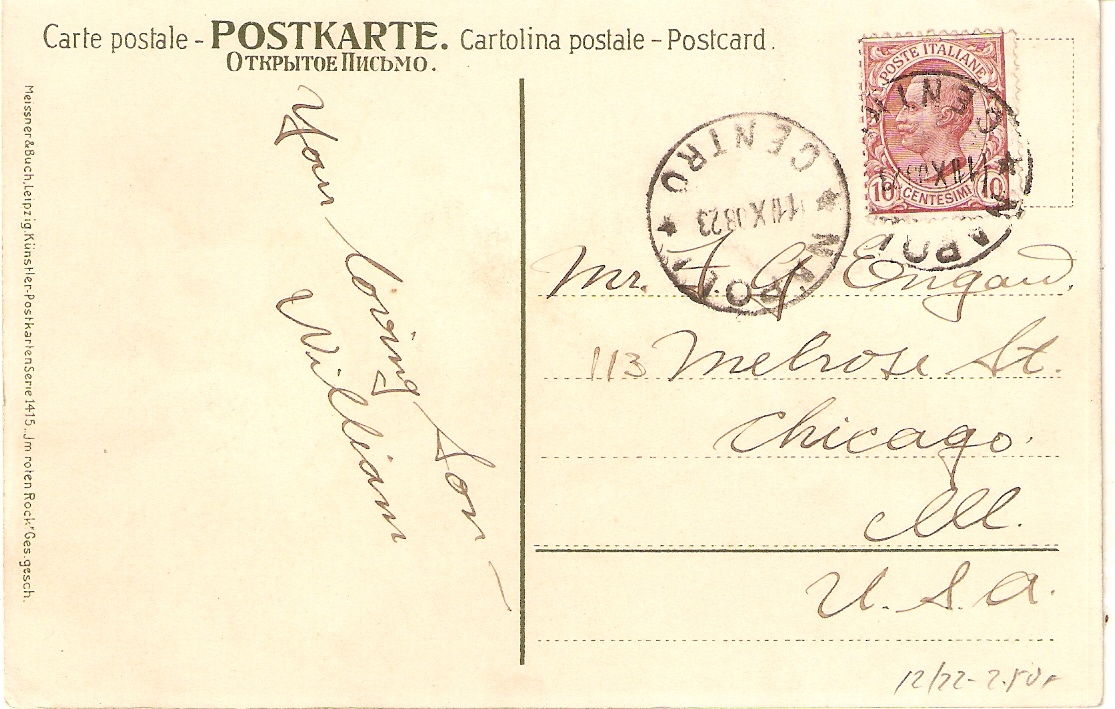 Carte postale - POSTKARTE. Cartolina postale - Postcard.
Открытое Письмо.
Meissner & Buch, Leipzig. Künstler-Postkarten Serie 1415. "Jm roten Rock" Ges. gesch.
Your loving Son —
William
POSTE ITALIANE
10 CENTESIMI 10
NAPOLI
CENTRO
NAPOLI
CENTRO
Mr. F. G.
113 Melrose St.
Chicago.
Ill.
U.S.A.
12/22-